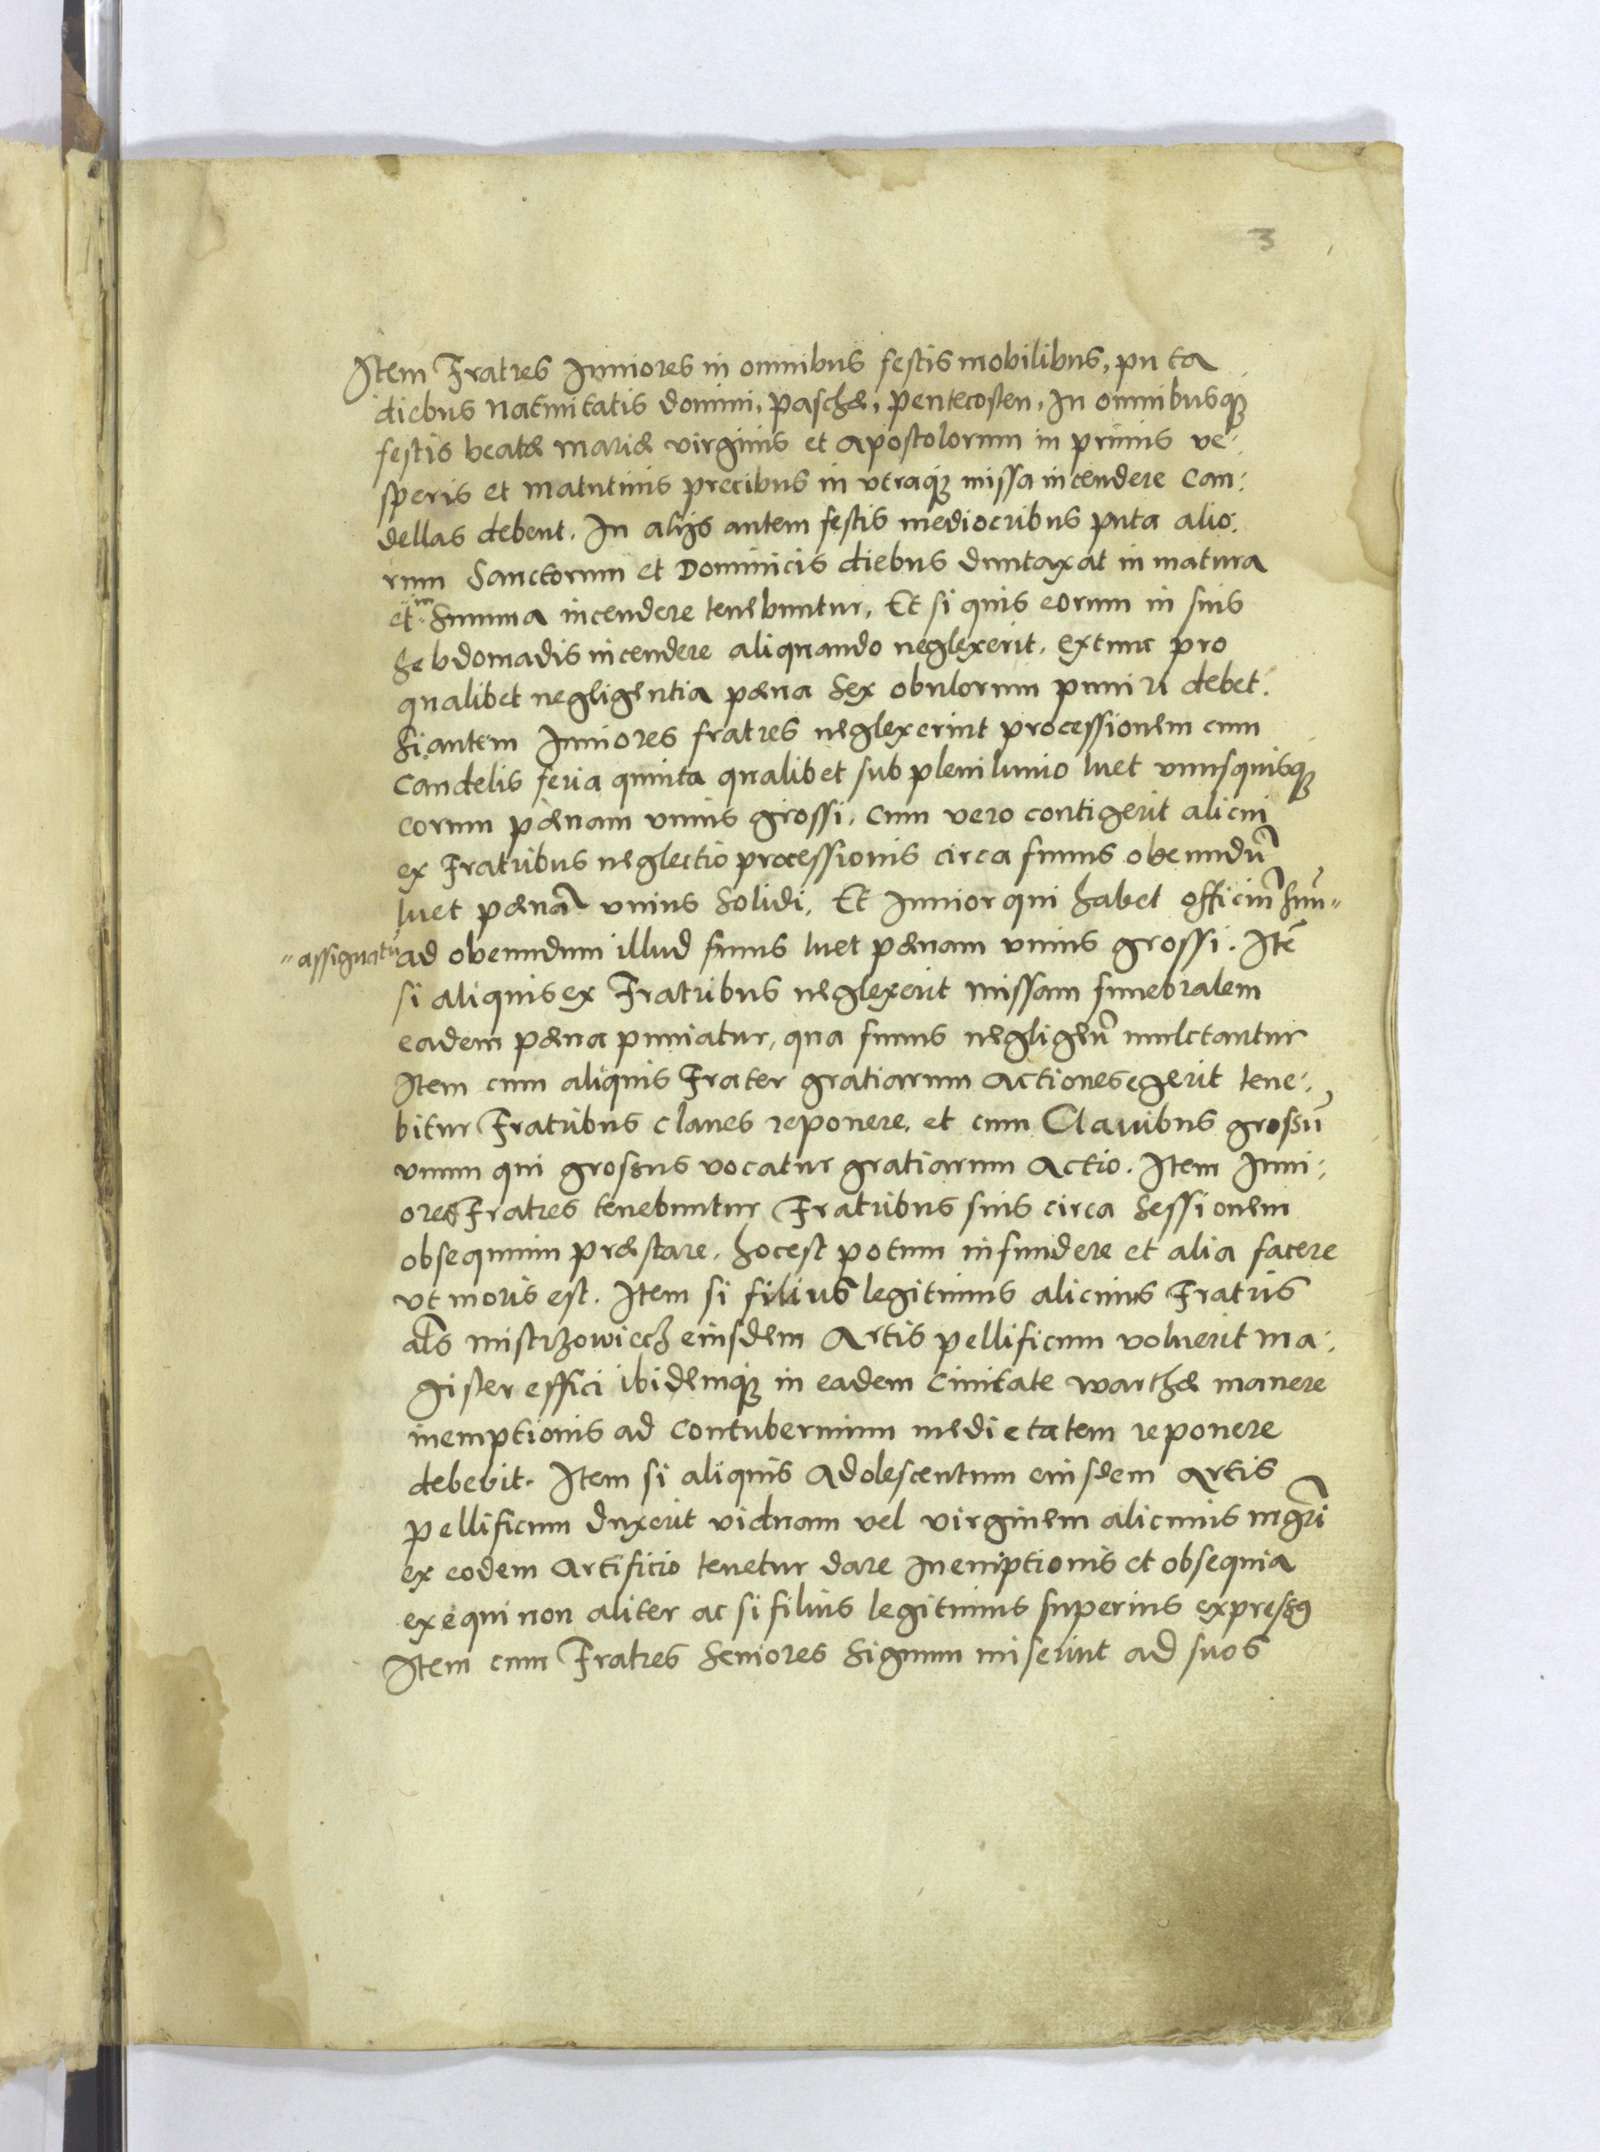 3
Item Fratres Iuniores in omnibus festis mobilibus, puta
diebus Natiuitatis domini, paschæ, pentecosten, In omnibusq₃
festis beatæ mariæ virginis et apostolorum in primis ve:
speris et matutinis precibus in vtraq₃ missa incendere Can:
dellas debent. In alijs autem festis mediocribus puta alio:
rum Sanctorum et Dominicis diebus duntaxat in matura
et in Summa incendere tenebuntur, Et si quis eorum in suis
hebdomadis incendere aliquando neglexerit, extunc pro
qualibet negligentia pæna Sex obulorum puniri debet.
Si autem Iuniores fratres neglexerint processionem cum
Candelis feria quinta qualibet sub plenilunio luet vnusquisq₃
eorum pænam vnius grossi, Cum vero contigerit alicui
ex Fratribus neglectio processionis circa funus obeundū
luet pænā vnius Solidi, Et Iunior qui habet officiū suū "
" assignatū ad obeundum illud funus luet pænam vnius grossi. Itē
si aliquis ex Fratribus neglexerit missam funebralem
eadem pæna puniatur, qua funus negligen̄ mulctantur
Item cum aliquis Frater gratiarum actiones egerit tene:
bitur Fratribus claues reponere, et cum Clauibus grossū
vnum qui grossus vocatur gratiarum Actio. Item Iuni:
ores Fratres tenebuntur Fratribus suis circa Sessionem
obsequium præstare, hoc est potum infundere et alia facere
vt moris est. Item si filius legitimus alicuius Fratris
als mistrzowiecz eiusdem Artis pellificum voluerit ma:
gister effici ibidemq₃ in eadem Ciuitate warthæ manere
inemptionis ad Contubernium medietatem reponere
debebit. Item si aliquis Adolescentum eiusdem Artis
pellificum duxerit viduam vel virginem alicuius mgri
ex eodem Artificio tenetur dare Inemptionis et obsequia
exequi non aliter ac si filius legitimus superius expressus
Item cum Fratres Seniores Signum miserint ad suos